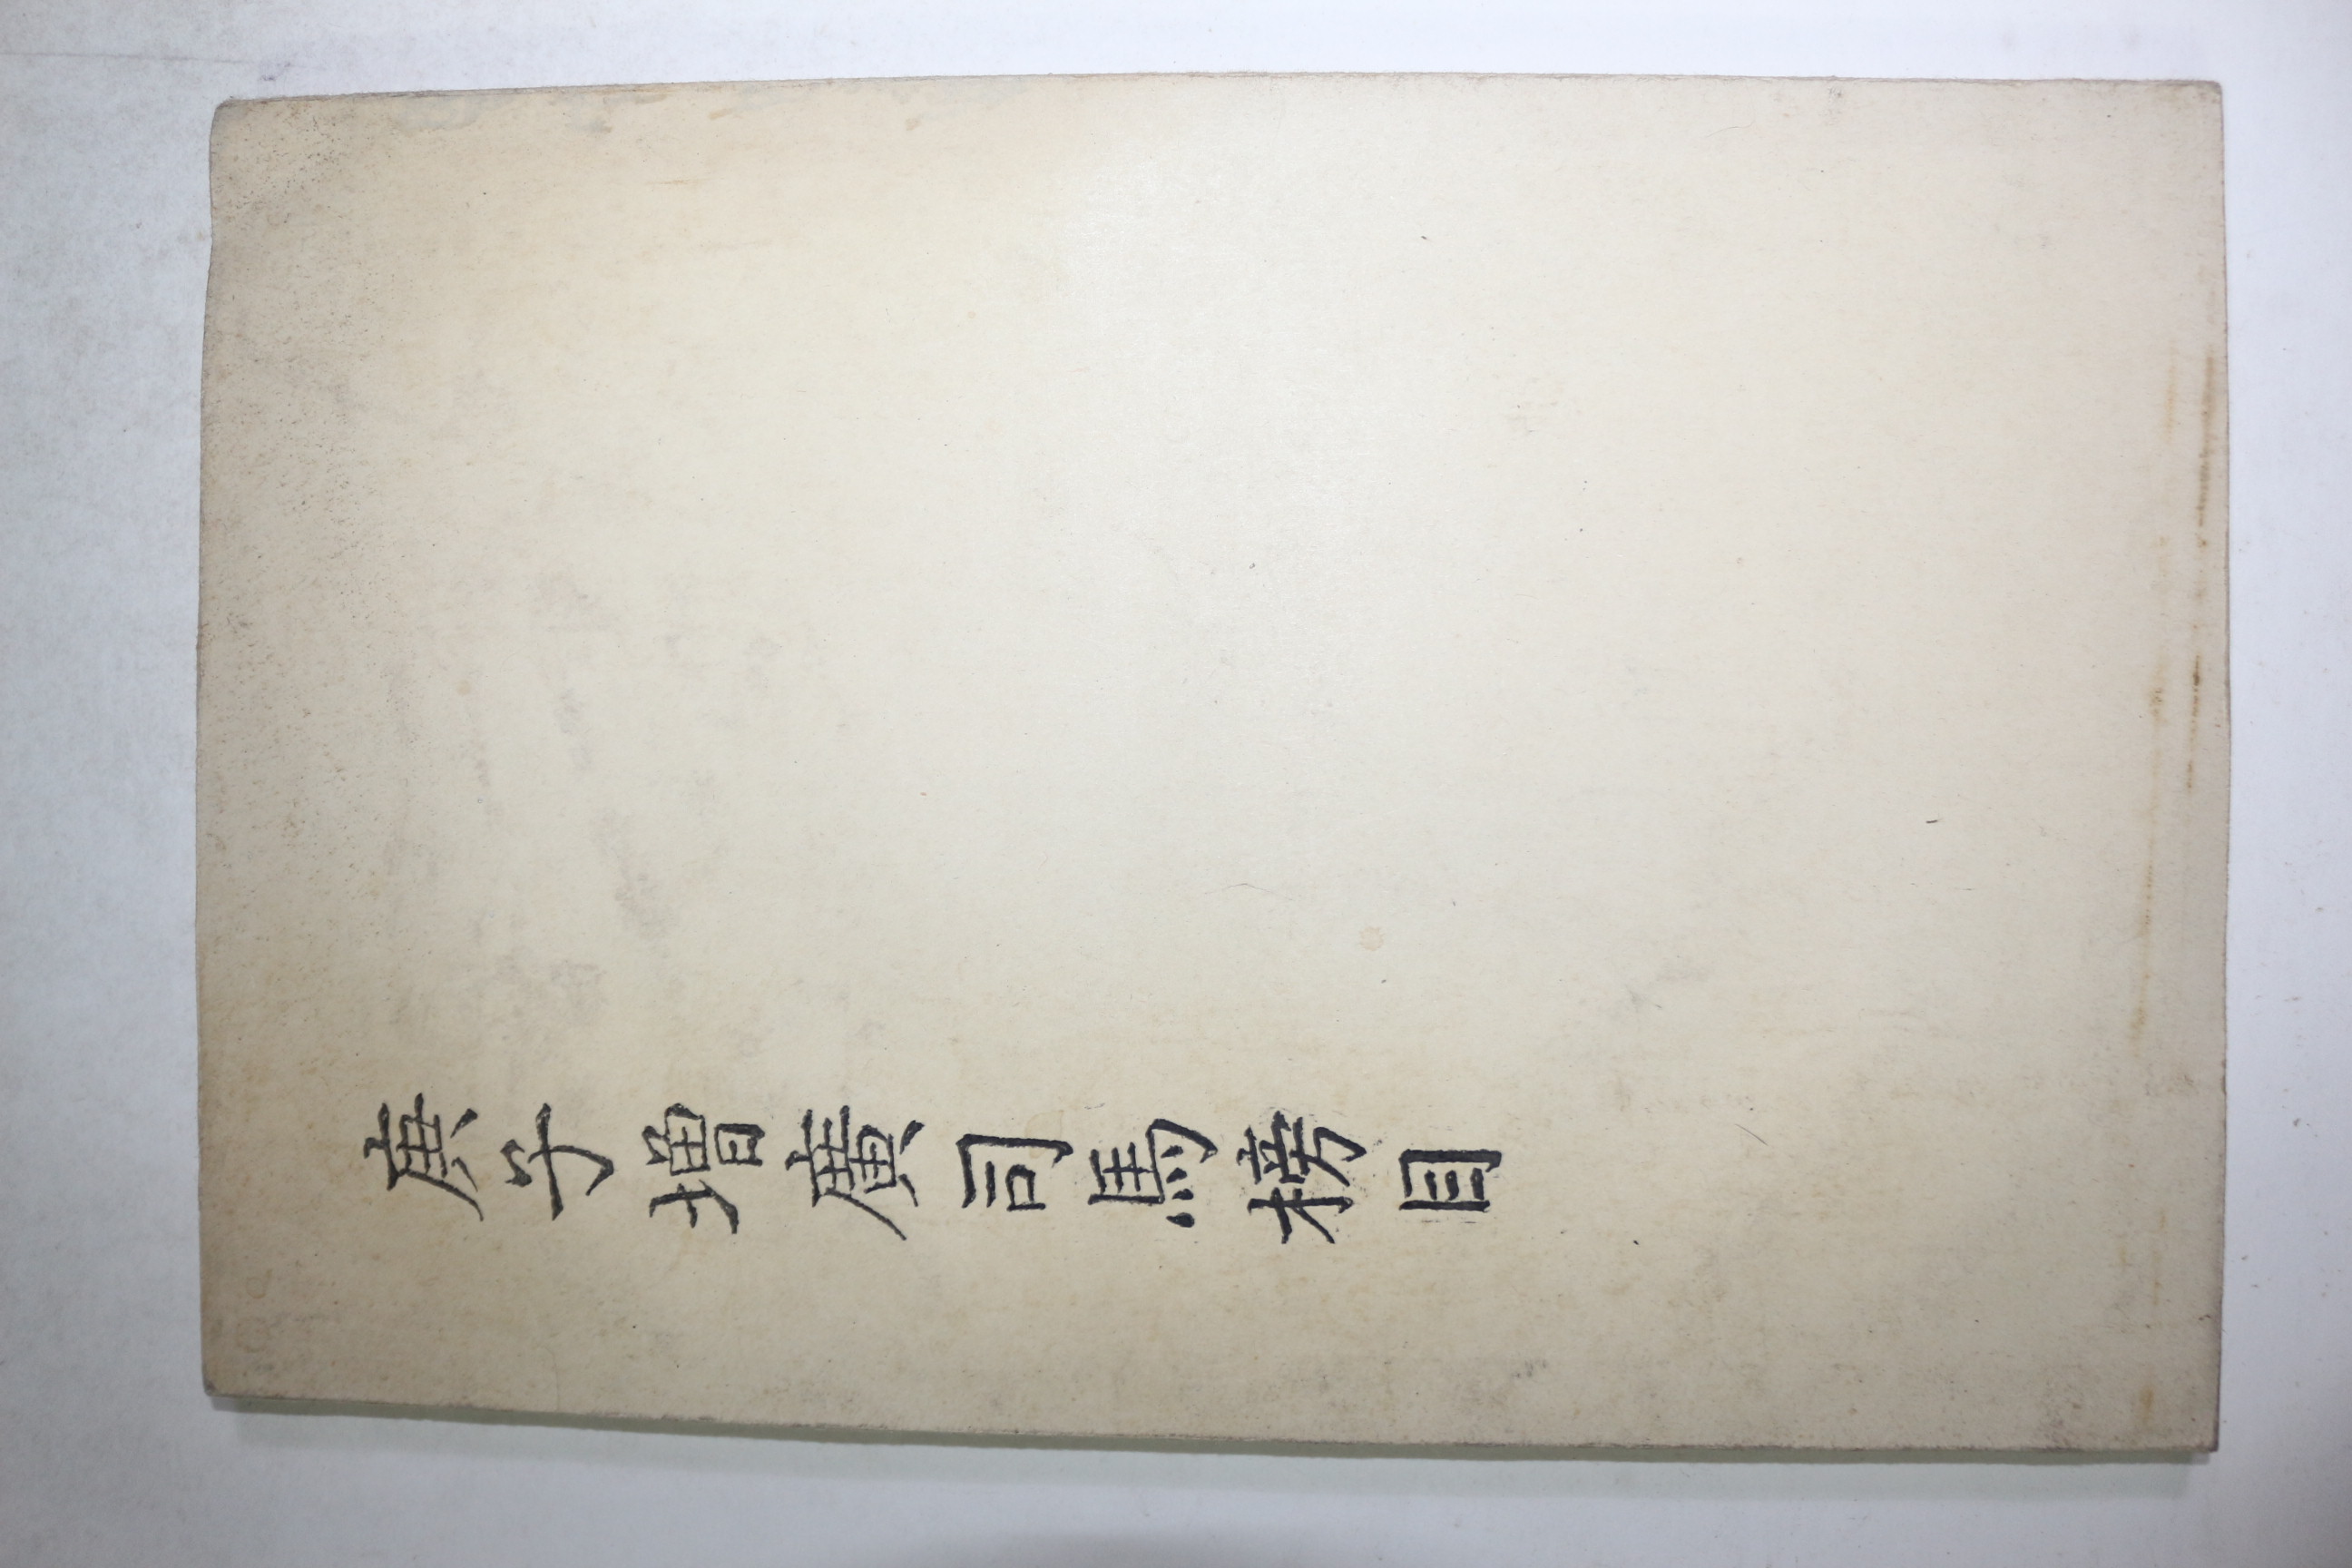 庚子增廣司馬榜目